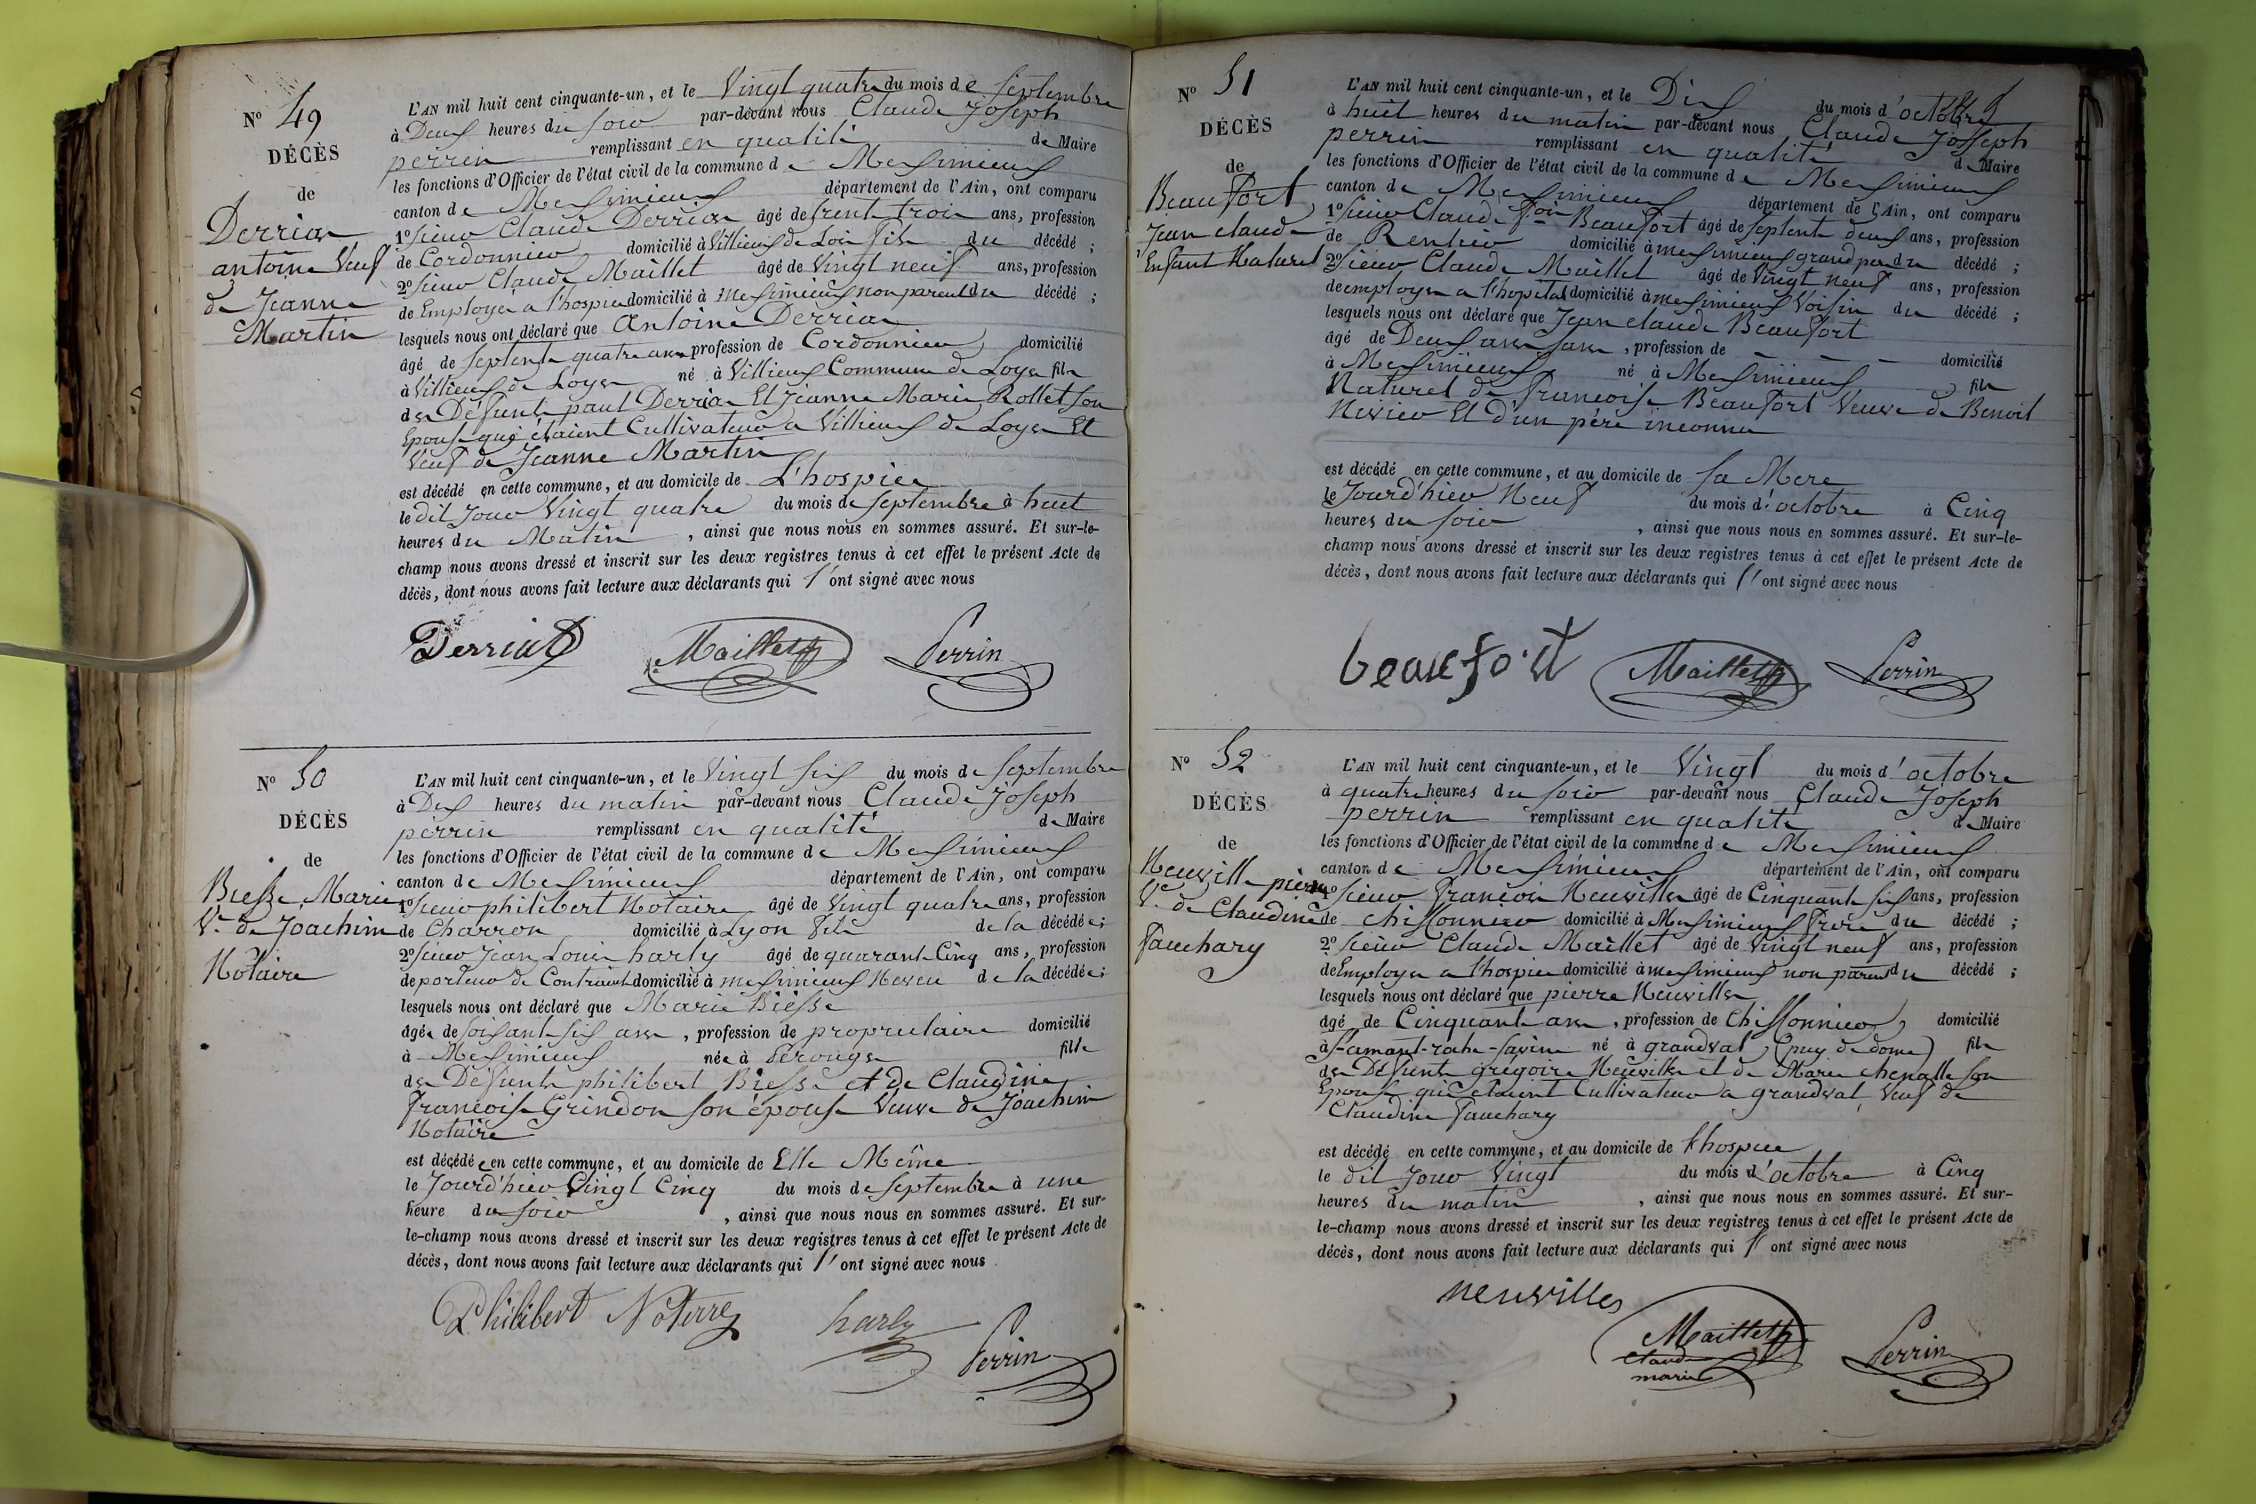 N° 49
DÉCÈS
de
Derrias
antoine Veuf
de Jeanne
Martin
L'AN mil huit cent cinquante-un, et le Vingt quatre du mois de Septembre
à Deux heures du soir par-devant nous Claude Joseph
perrin remplissant en qualité de Maire
les fonctions d'Officier de l'état civil de la commune de Meximieux
canton de Meximieux département de l'Ain, ont comparu
1° Sieur Claude Derrias âgé de trente trois ans, profession
de Cordonnier domicilié à Villieux de Loie fils du décédé ;
2° Sieur Claude Maillet âgé de Vingt neuf ans, profession
de Employé a l'hospice domicilié à Meximieux non parent du décédé ;
lesquels nous ont déclaré que Antoine Derrias
âgé de septente quatre ans profession de Cordonnier, domicilié
à Villieux de Loyes né à Villieux Commune de Loyes fils
des Défunts paul Derrias Et Jeanne Marie Rollet son
Epouse qui étaient Cultivateur a Villieux de Loyes Et
Veuf de Jeanne Martin
est décédé en cette commune, et au domicile de L'hospice
le dit Jour Vingt quatre du mois de septembre à huit
heures du Matin, ainsi que nous nous en sommes assuré. Et sur-le-
champ nous avons dressé et inscrit sur les deux registres tenus à cet effet le présent Acte de
décès, dont nous avons fait lecture aux déclarants qui l'ont signé avec nous
Derriat Maillet Perrin
N° 50
DÉCÈS
de
Biesse Marie
Ve de Joachim
Notaire
L'AN mil huit cent cinquante-un, et le Vingt six du mois de septembre
à Dix heures du matin par-devant nous Claude Joseph
perrin remplissant en qualité de Maire
les fonctions d'Officier de l'état civil de la commune de Meximieux
canton de Meximieux département de l'Ain, ont comparu
1° Sieur philibert Notaire âgé de Vingt quatre ans, profession
de Charron domicilié à Lyon fils de la décédée ;
2° Sieur Jean Louis harly âgé de quarante Cinq ans, profession
de porteur de Contrainte domicilié à Meximieux Neveu de la décédée ;
lesquels nous ont déclaré que Marie Biesse
âgée de soixante six ans, profession de propriétaire domicilié
à Meximieux née à Pérouges fille
des Défunts philibert Biesse et de Claudine
francoise Grindon son épouse Veuve de Joachim
Notaire
est décédée en cette commune, et au domicile de Elle Même
le Jourd'hier Vingt Cinq du mois de septembre à une
heure du soir, ainsi que nous nous en sommes assuré. Et sur-
le-champ nous avons dressé et inscrit sur les deux registres tenus à cet effet le présent Acte de
décès, dont nous avons fait lecture aux déclarants qui l'ont signé avec nous
Philibert Noterre harly Perrin
N° 51
DÉCÈS
de
Beaufort
Jean claude
Enfant Naturel
L'AN mil huit cent cinquante-un, et le Dix du mois d'octobre
à huit heures du matin par-devant nous Claude Joseph
perrin remplissant en qualité de Maire
les fonctions d'Officier de l'état civil de la commune de Meximieux
canton de Meximieux département de l'Ain, ont comparu
1° Sieur Claude fçois Beaufort âgé de septente deux ans, profession
de Rentier domicilié à Meximieux grand pere du décédé ;
2° Sieur Claude Maillet âgé de Vingt neuf ans, profession
de employer a l'hopital domicilié à Meximieux Voisin du décédé ;
lesquels nous ont déclaré que Jean claude Beaufort
âgé de Deux ans sans, profession de - - - domicilié
à Meximieux, né à Meximieux, fils
Naturel de Francoise Beaufort Veuve de Benoit
Nevieo Et d'un père inconnu
est décédé en cette commune, et au domicile de sa Mere
le Jourd'hier Neuf du mois d'octobre à Cinq
heures du soir, ainsi que nous nous en sommes assuré. Et sur-le-
champ nous avons dressé et inscrit sur les deux registres tenus à cet effet le présent Acte de
décès, dont nous avons fait lecture aux déclarants qui l'ont signé avec nous
beaufort Maillet Perrin
N° 52
DÉCÈS
de
Neuville pierre
Vf de Claudine
Fauchary
L'AN mil huit cent cinquante-un, et le Vingt du mois d'octobre
à quatre heures du soir par-devant nous Claude Joseph
perrin remplissant en qualité de Maire
les fonctions d'Officier de l'état civil de la commune de Meximieux
canton de Meximieux département de l'Ain, ont comparu
1° Sieur françois Neuville âgé de Cinquante six ans, profession
de chiffonnier domicilié à Meximieux frere du décédé ;
2° Sieur Claude Maillet âgé de Vingt neuf ans, profession
de Employer a l'hospice domicilié à Meximieux non parent du décédé ;
lesquels nous ont déclaré que pierre Neuville
âgé de Cinquante ans, profession de Chiffonnier, domicilié
à St-amant-roche-savine né à grandval, (puy de dome) fils
des Défunts grégoire Neuville et de Marie chenalle son
Epouse qui étaient Cultivateur a grandval, Veuf de
Claudine Fauchary
est décédé en cette commune, et au domicile de l'hospice
le dit Jour Vingt du mois d'octobre à Cinq
heures du matin, ainsi que nous nous en sommes assuré. Et sur-
le-champ nous avons dressé et inscrit sur les deux registres tenus à cet effet le présent Acte de
décès, dont nous avons fait lecture aux déclarants qui l'ont signé avec nous
neuvilles Maillet Perrin
claude
marie